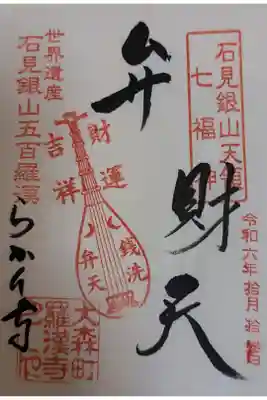 石見銀山天領
七福神
弁財天
令和六年拾月拾
世界遺産
石見銀山五百羅漢
財運
吉祥
銭洗
弁天
らかん寺
大森町
羅漢寺